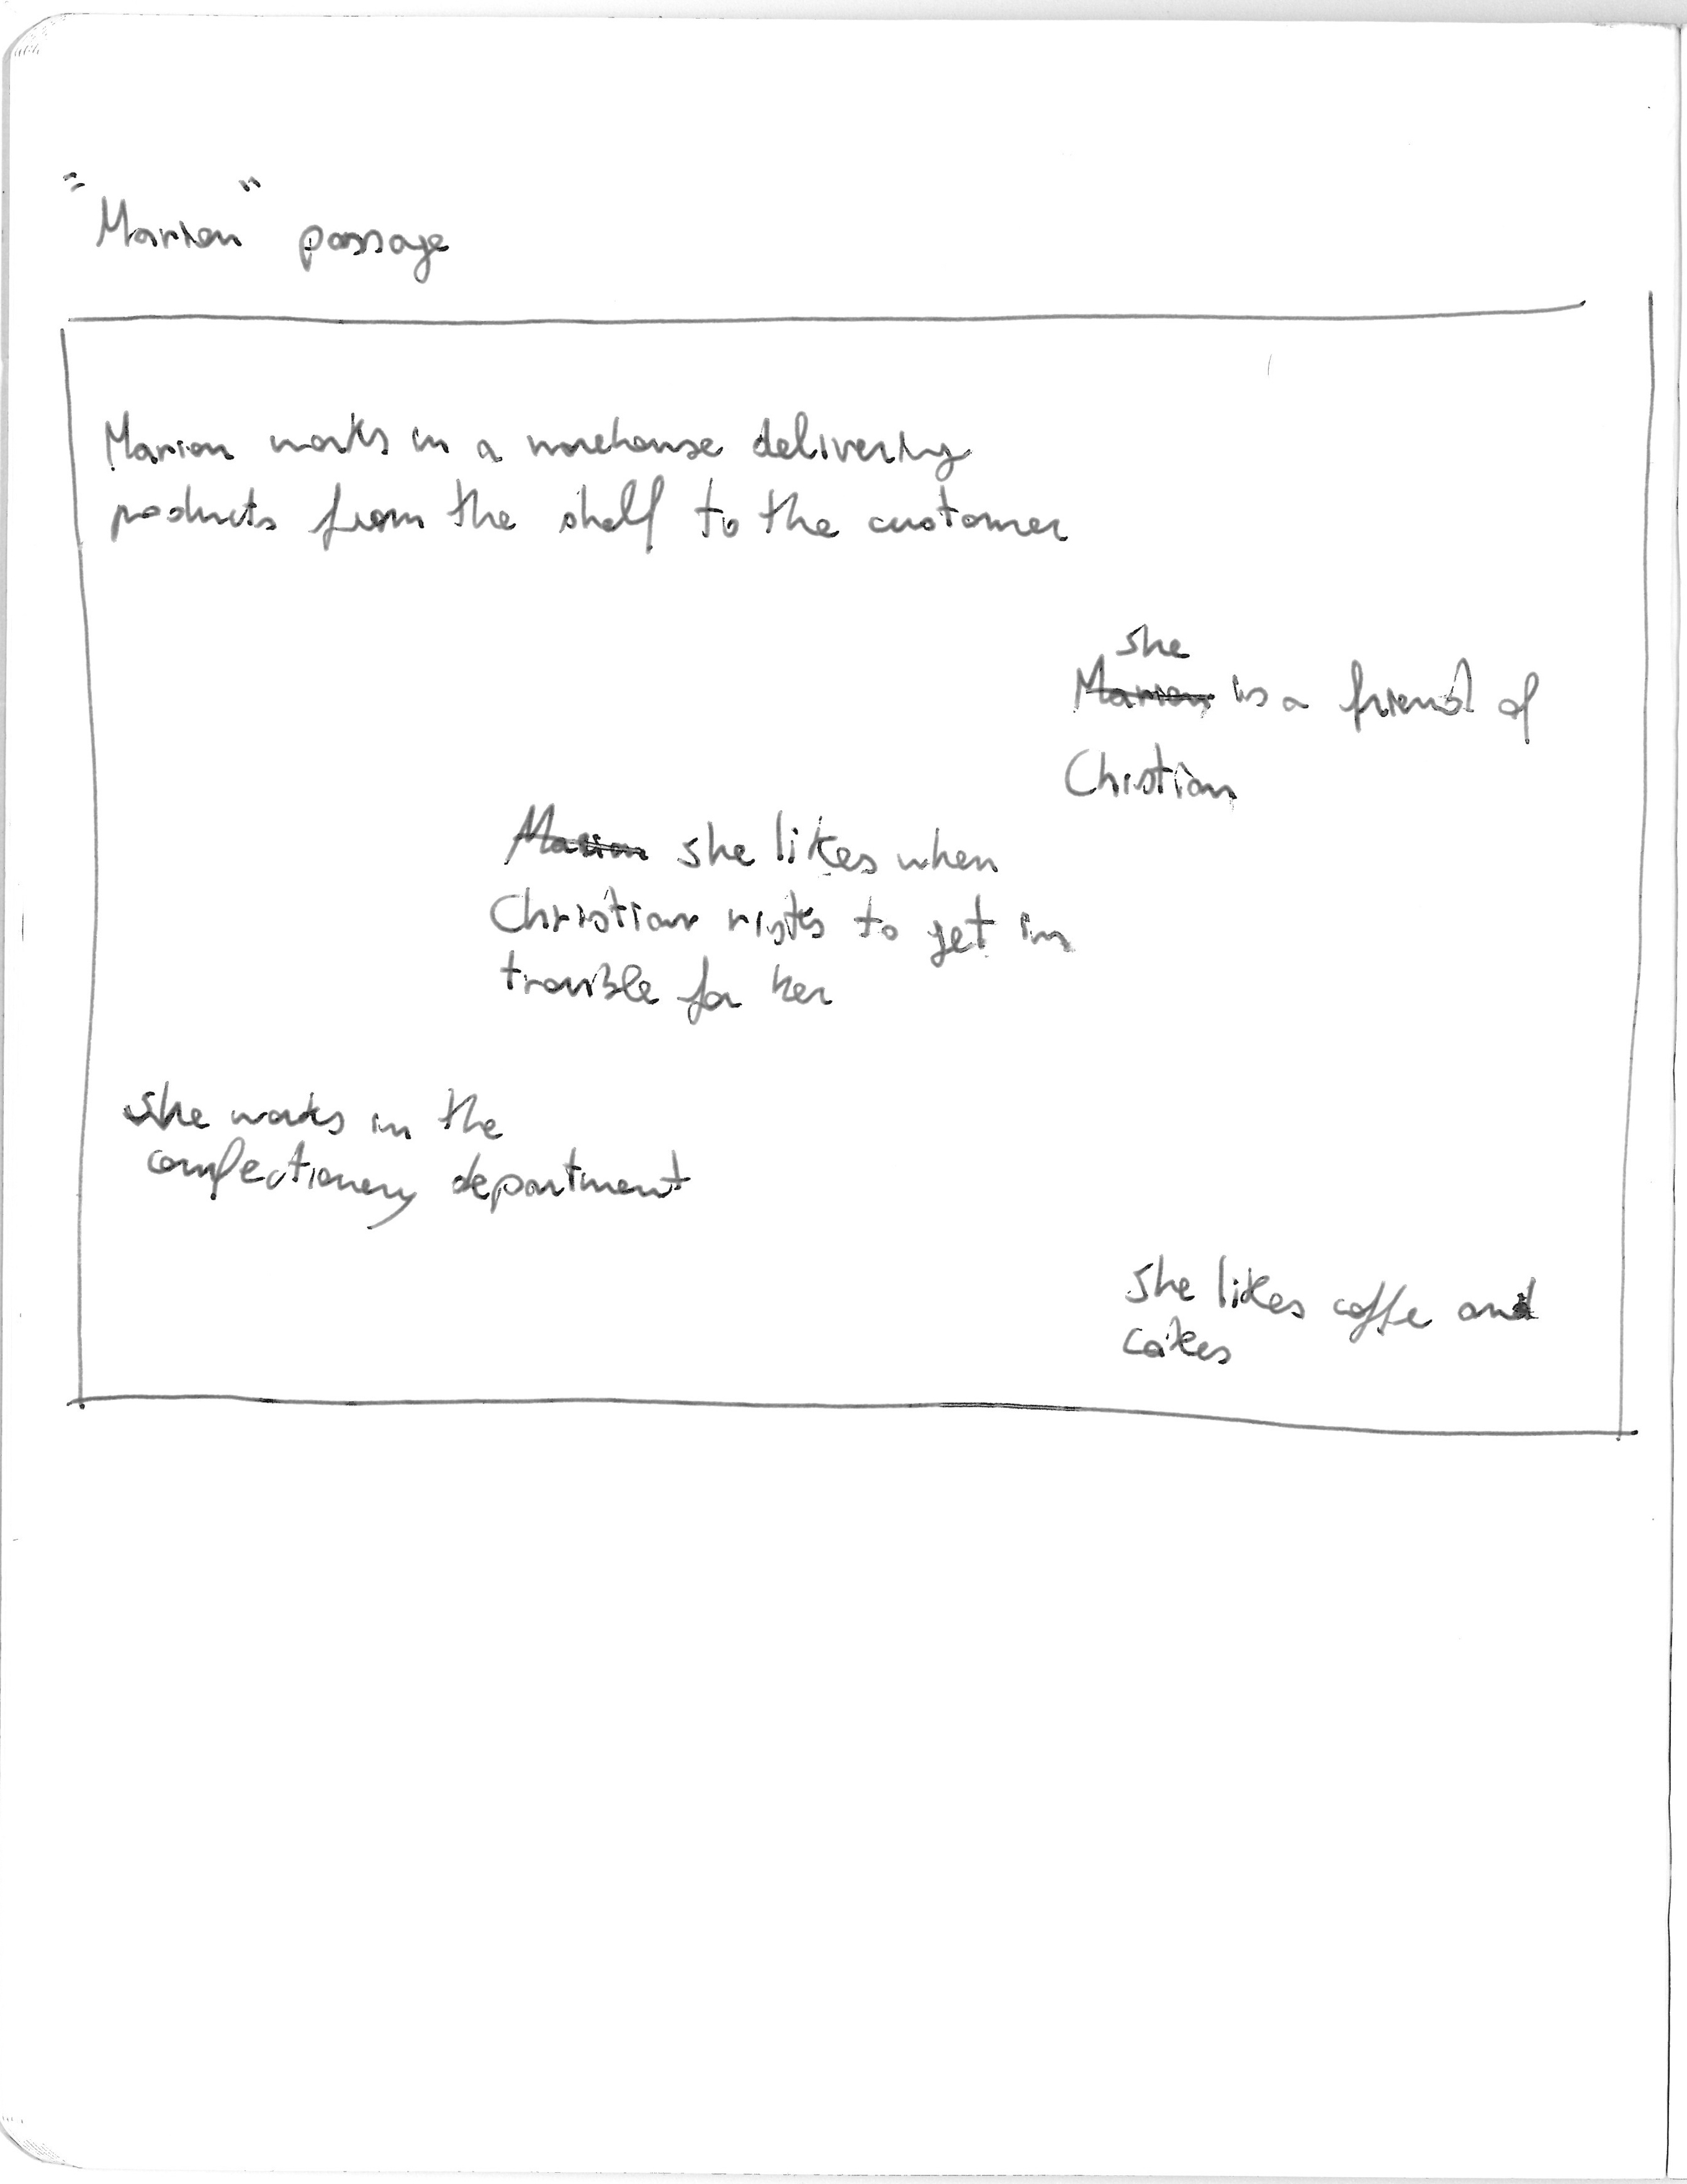 "Marion" passage
Marion works in a warehouse delivering
products from the shelf to the customer
she
Marion is a friend of
Christian
Marion she likes when
Christian risks to get in
trouble for her
she works in the
confectionery department
she likes coffe and
cakes